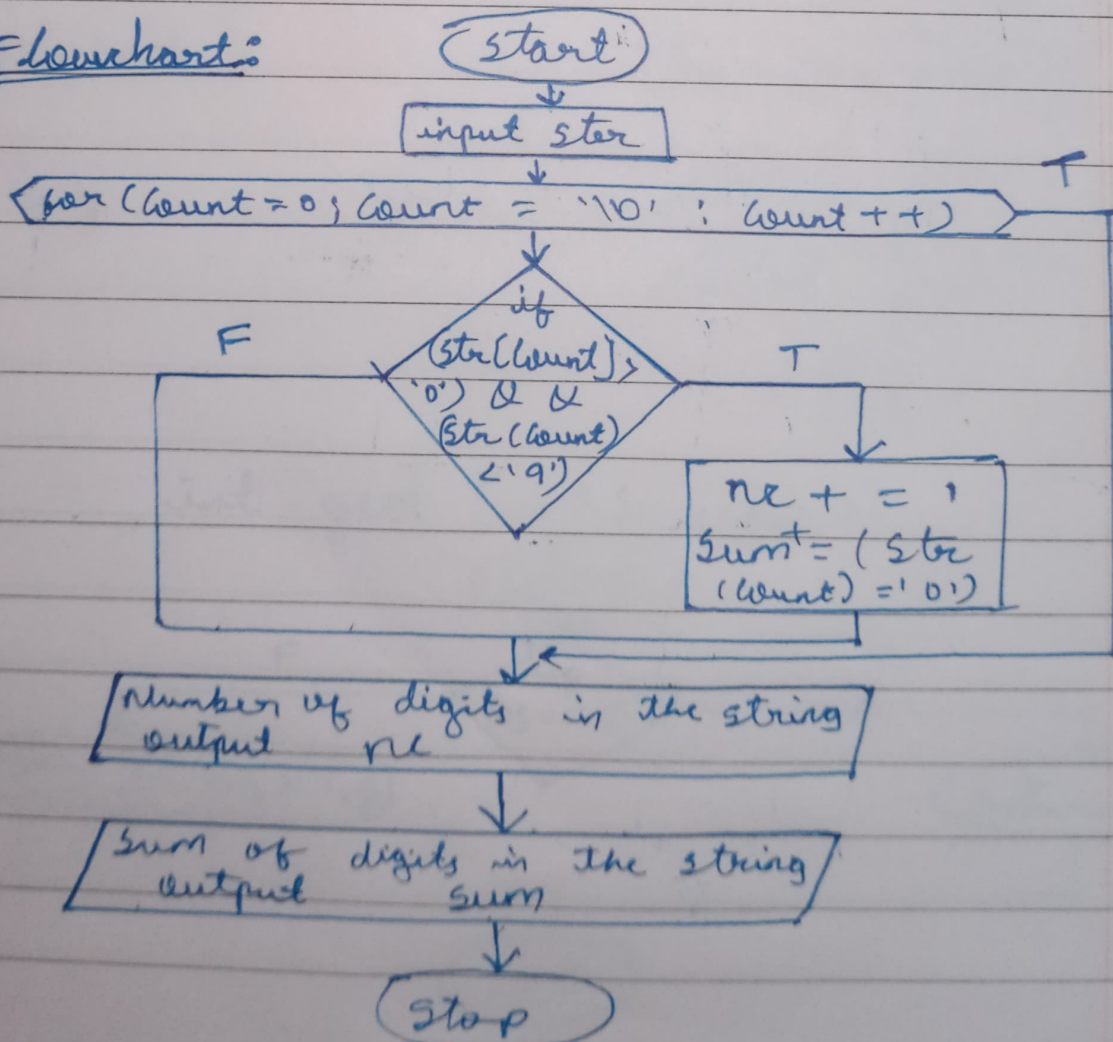 Flowchart:
Start
input str
for (Count = 0; Count = '\0' : Count + +)
T
if
(str[Count] >
'0') & &
(str(Count)
<'9')
F
T
nc + = 1
Sum += (str
(Count) = '0')
Number of digits in the string
output nc
Sum of digits in the string
output sum
Stop